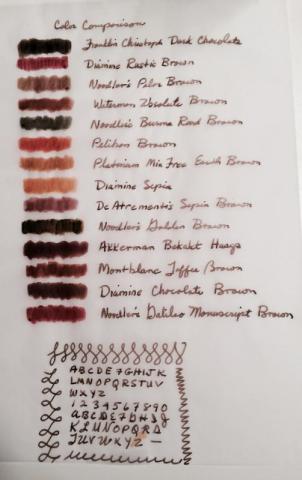 Color Comparison
Franklin Christoph Dark Chocolate
Diamine Rustic Brown
Noodler's Polar Brown
Waterman Absolute Brown
Noodler's Burma Road Brown
Pelikan Brown
Platinum Mix Free Earth Brown
Diamine Sepia
De Atramentis Sepia Brown
Noodler's Golden Brown
Akkerman Bekakt Haags
Montblanc Toffee Brown
Diamine Chocolate Brown
Noodler's Galileo Manuscript Brown
ABCDEFGHIJK
LMNOPQRSTUV
WXYZ
1234567890